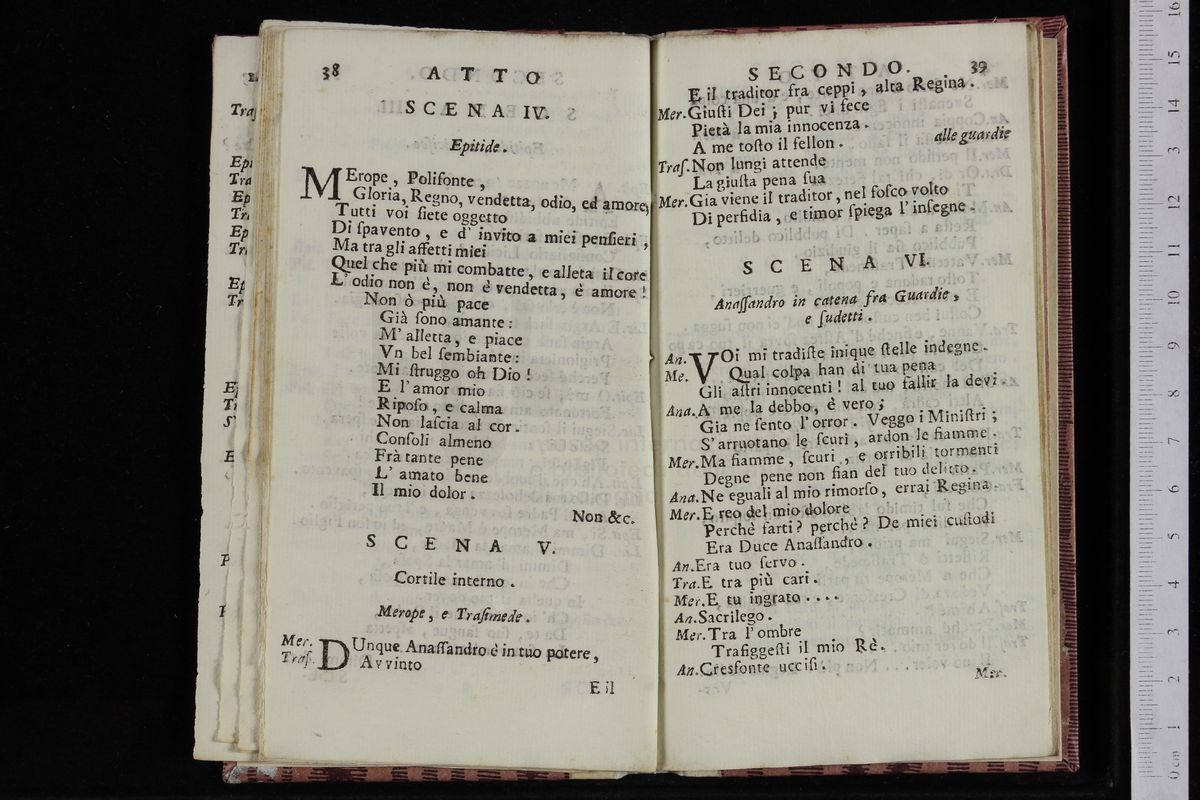 38 ATTO
SCENA IV.
Epitide.
MErope, Polifonte,
Gloria, Regno, vendetta, odio, ed amore,
Tutti voi ſiete oggetto
Di ſpavento, e d' invito a miei penſieri,
Ma tra gli affetti miei
Quel che più mi combatte, e alleta il core
L' odio non è, non è vendetta, è amore!
Non ò più pace
Già ſono amante:
M' alletta, e piace
Vn bel ſembiante:
Mi ſtruggo oh Dio!
E l'amor mio
Ripoſo, e calma
Non laſcia al cor.
Conſoli almeno
Frà tante pene
L' amato bene
Il mio dolor.
Non &c.
SCENA V.
Cortile interno.
Merope, e Traſimede.
Mer. DUnque Anaſſandro è in tuo potere,
Traſ. Avvinto
E il
SECONDO. 39
E il traditor fra ceppi, alta Regina.
Mer. Giuſti Dei; pur vi fece
Pietà la mia innocenza.
A me toſto il fellon. alle guardie
Traſ. Non lungi attende
La giuſta pena ſua
Mer. Gia viene il traditor, nel foſco volto
Di perfidia, e timor ſpiega l'inſegne.
SCENA VI.
Anaſſandro in catena fra Guardie,
e ſudetti.
An. VOi mi tradiſte inique ſtelle indegne.
Me. Qual colpa han di tua pena
Gli aſtri innocenti! al tuo fallir la devi.
Ana. A me la debbo, è vero;
Gia ne ſento l'orror. Veggo i Miniſtri;
S'arruotano le ſcuri, ardon le fiamme.
Mer. Ma fiamme, ſcuri, e orribili tormenti
Degne pene non fian del tuo delitto.
Ana. Ne eguali al mio rimorſo, errai Regina.
Mer. E reo del mio dolore
Perchè farti? perchè? De miei cuſtodi
Era Duce Anaſſandro.
An. Era tuo ſervo.
Tra. E tra più cari.
Mer. E tu ingrato....
An. Sacrilego.
Mer. Tra l'ombre
Trafiggeſti il mio Rè.
An. Cresfonte ucciſi.
Mer.